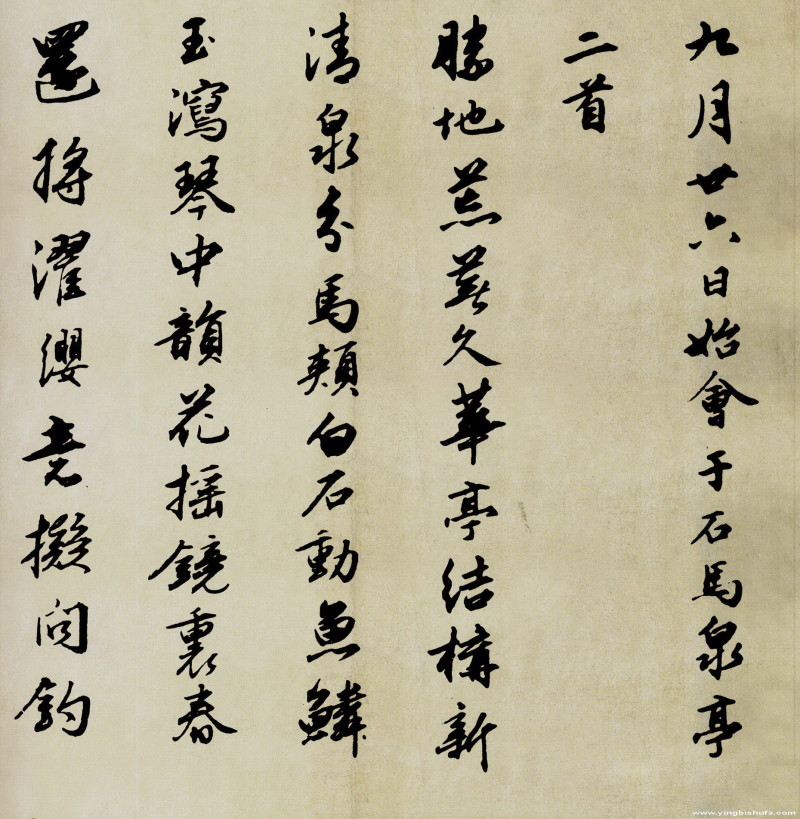 九月廿六日始會于石馬泉亭
二首
勝地荒蕪久華亭結構新
清泉分馬頰白石動魚鱗
玉瀉琴中韻花搖鏡裏春
還將濯纓意擬問釣
www.yingbishufa.com